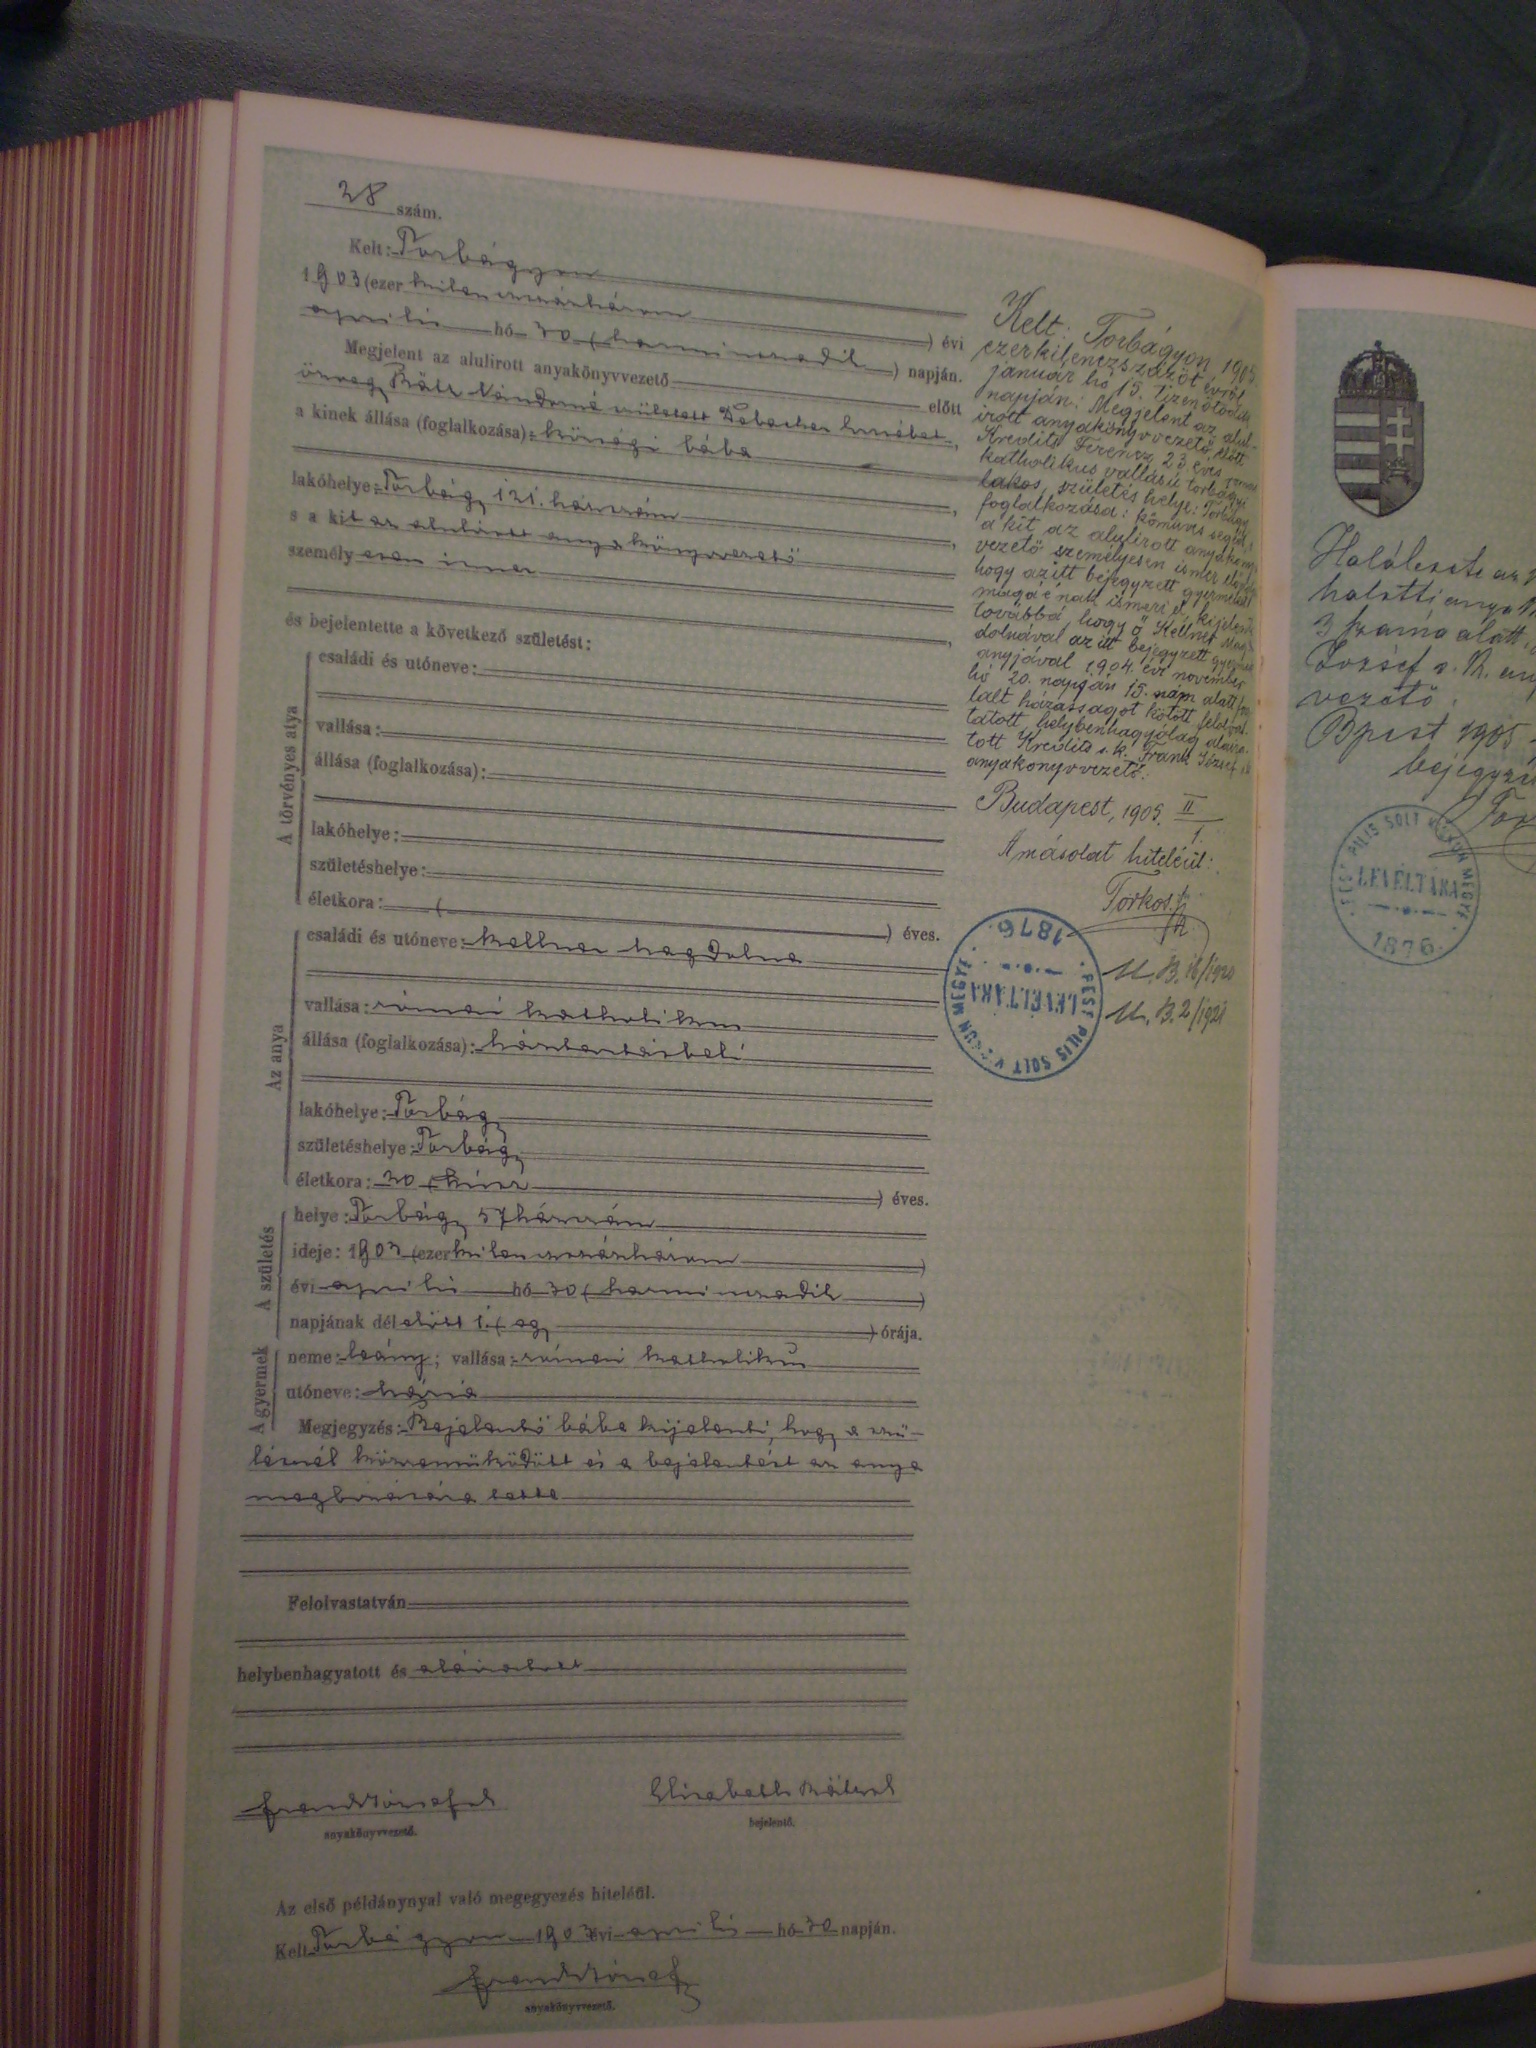 28 szám.
Kelt: Torbágyon
1903 (ezer kilencszázhárom) évi
április hó 30 (harmincadik) napján.
Megjelent az alulirott anyakönyvvezető előtt
özvegy Nándorné született Erzsébet,
a kinek állása (foglalkozása): községi bába
lakóhelye: Torbágy 121. házszám,
s a kit az alulírott anyakönyvvezető
személyesen ismer
és bejelentette a következő születést:
A törvényes atya
családi és utóneve:
vallása:
állása (foglalkozása):
lakóhelye:
születéshelye:
életkora: ( ) éves.
Az anya
családi és utóneve: Kellner Magdolna
vallása: római katholikus
állása (foglalkozása): háztartásbeli
lakóhelye: Torbágy
születéshelye: Torbágy
életkora: 20 (húsz) éves.
A születés
helye: Torbágy 57 házszám
ideje: 1903 (ezer kilencszázhárom)
évi április hó 30 (harmincadik)
napjának délelőtt 1. (egy) órája.
A gyermek
neme: leány; vallása: római katholikus
utóneve: Mária
Megjegyzés: Bejelentő bába kijelenti, hogy a szü-
lésnél közreműködött és a bejelentést az anya
megbízására tette
Felolvastatván
helybenhagyatott és aláíratott
Frank József
anyakönyvvezető.
Elisabeth
bejelentő.
Az első példánynyal való megegyezés hiteléül.
Kelt Torbágyon 1903 évi április hó 30 napján.
Frank József
anyakönyvvezető.
Kelt: Torbágyon 1905
ezerkilenczszázöt évről
január hó 15. tizenötödik
napján: Megjelent az alul-
irott anyakönyvvezető előtt
Kreidits Ferencz, 23 éves, római
katholikus vallású torbágyi
lakos, születés helye: Torbágy
foglalkozása: kőmüves segéd,
a kit az alulirott anyaköny
vezető személyesen ismer
hogy azitt bejegyzett gyermeket
magáénak ismeri el, kijelenti
továbbá, hogy ő Kellner Mag-
dolnával az itt bejegyzett gyermek
anyjával 1904. évi november
hó 20. napján 15. szám alatt
házasságot kötött felolvas-
tatott, helybenhagyólag aláira-
tott Kreidits s. k. Frank József s. k.
anyakönyvvezető.
Budapest, 1905. II/1.
A másolat hiteléül:
Torkos
PEST PILIS SOLT KISKUN MEGYE
LEVÉLTÁRA
1876
U. B. 16/1920
U. B. 2/1921
Haláleseti
halotti anya
3 száma alatt
József s. k. any
vezető.
Bpest 1905
bejegyzé
Tor
PEST PILIS SOLT KISKUN MEGYE
LEVÉLTÁRA
1876